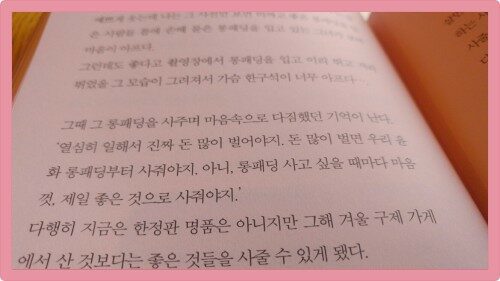 예쁘게 웃는데 나는 그 사진만 보면
은 사람들 틈에 손때 묻은 롱패딩을 입고 있는 그녀가
마음이 아프다.
그런데도 좋다고 촬영장에서 롱패딩을 입고 이리 뛰고 저리
뛰었을 그 모습이 그려져서 가슴 한구석이 너무 아프다…….
그때 그 롱패딩을 사주며 마음속으로 다짐했던 기억이 난다.
'열심히 일해서 진짜 돈 많이 벌어야지. 돈 많이 벌면 우리 윤
화 롱패딩부터 사줘야지. 아니, 롱패딩 사고 싶을 때마다 마음
껏, 제일 좋은 것으로 사줘야지.'
다행히 지금은 한정판 명품은 아니지만 그해 겨울 구제 가게
에서 산 것보다는 좋은 것들을 사줄 수 있게 됐다.
하는 사